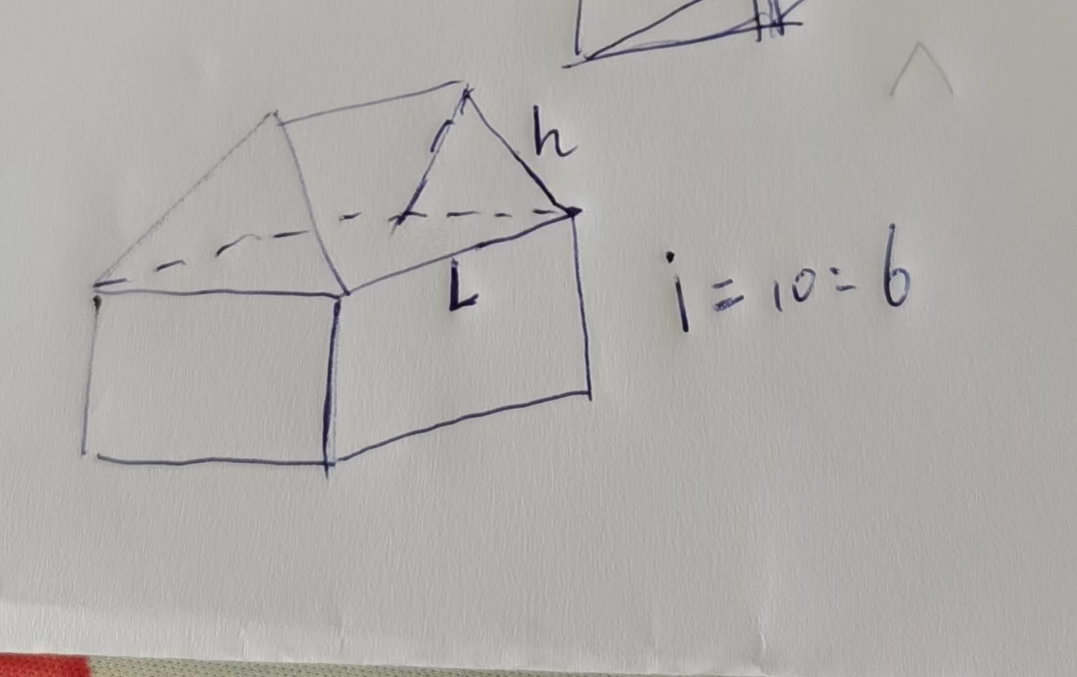 h
L
i = 10 : 6